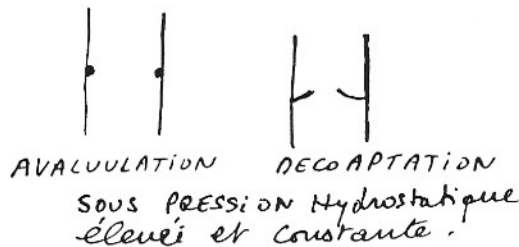 AVALVULATION DECOAPTATION
SOUS PRESSION Hydrostatique
élevée et constante.